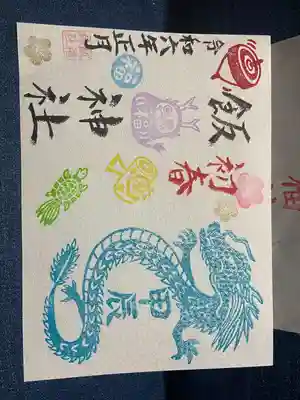 令和六年正月
飯神社
福
初春
甲辰